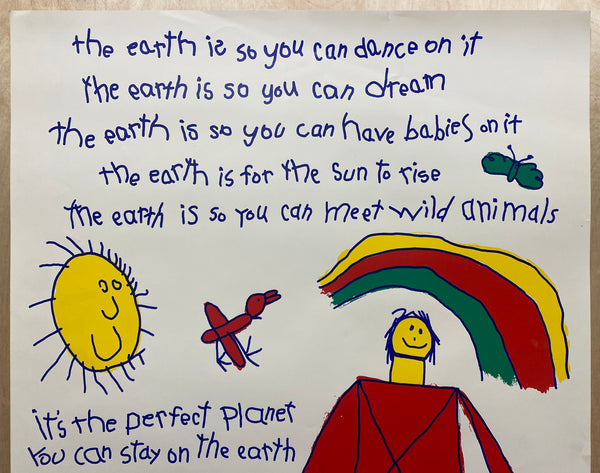 the earth is so you can dance on it
the earth is so you can dream
the earth is so you can have babies on it
the earth is for the sun to rise
the earth is so you can meet wild animals
it's the perfect planet
you can stay on the earth